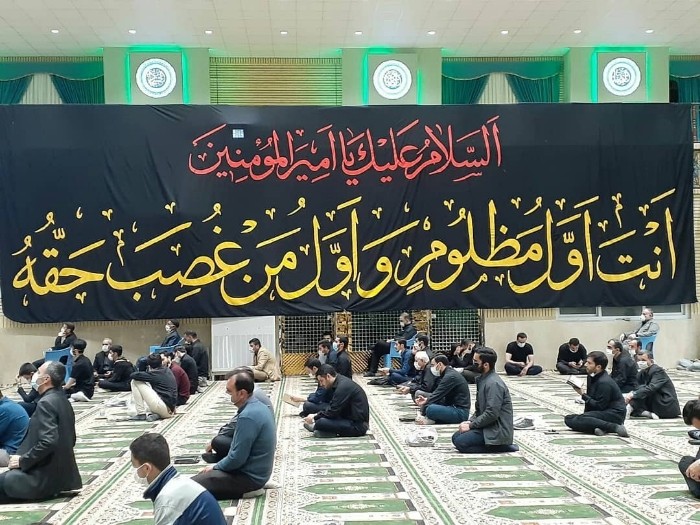 السَّلامُ عَلَيْكَ يَا اَمِيرَ المُؤْمِنِينَ
اَنْتَ اَوَّلُ مَظْلُومٍ وَ اَوَّلُ مَنْ غُصِبَ حَقُّهُ